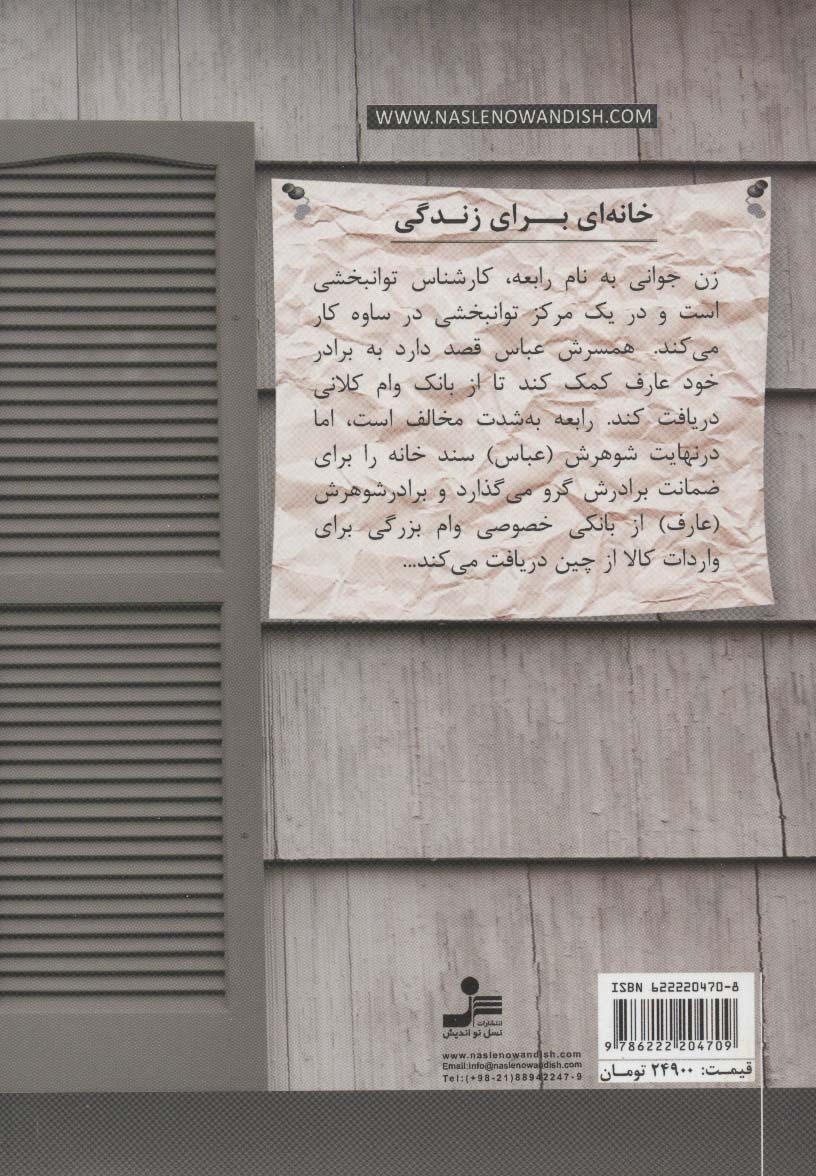 WWW.NASLENOWANDISH.COM
خانه‌ای بــرای زنـدگی
زن جوانی به نام رابعه، کارشناس توانبخشی
است و در یک مرکز توانبخشی در ساوه کار
می‌کند. همسرش عباس قصد دارد به برادر
خود عارف کمک کند تا از بانک وام کلانی
دریافت کند. رابعه به‌شدت مخالف است، اما
درنهایت شوهرش (عباس) سند خانه را برای
ضمانت برادرش گرو می‌گذارد و برادرشوهرش
(عارف) از بانکی خصوصی وام بزرگی برای
واردات کالا از چین دریافت می‌کند...
ISBN 622220470-8
9 786222 204709
قیمـت: ۲۴۹۰۰ تومـان
انتشارات
نسل نو اندیش
www.naslenowandish.com
Email:info@naslenowandish.com
Tel:(+98-21)88942247-9